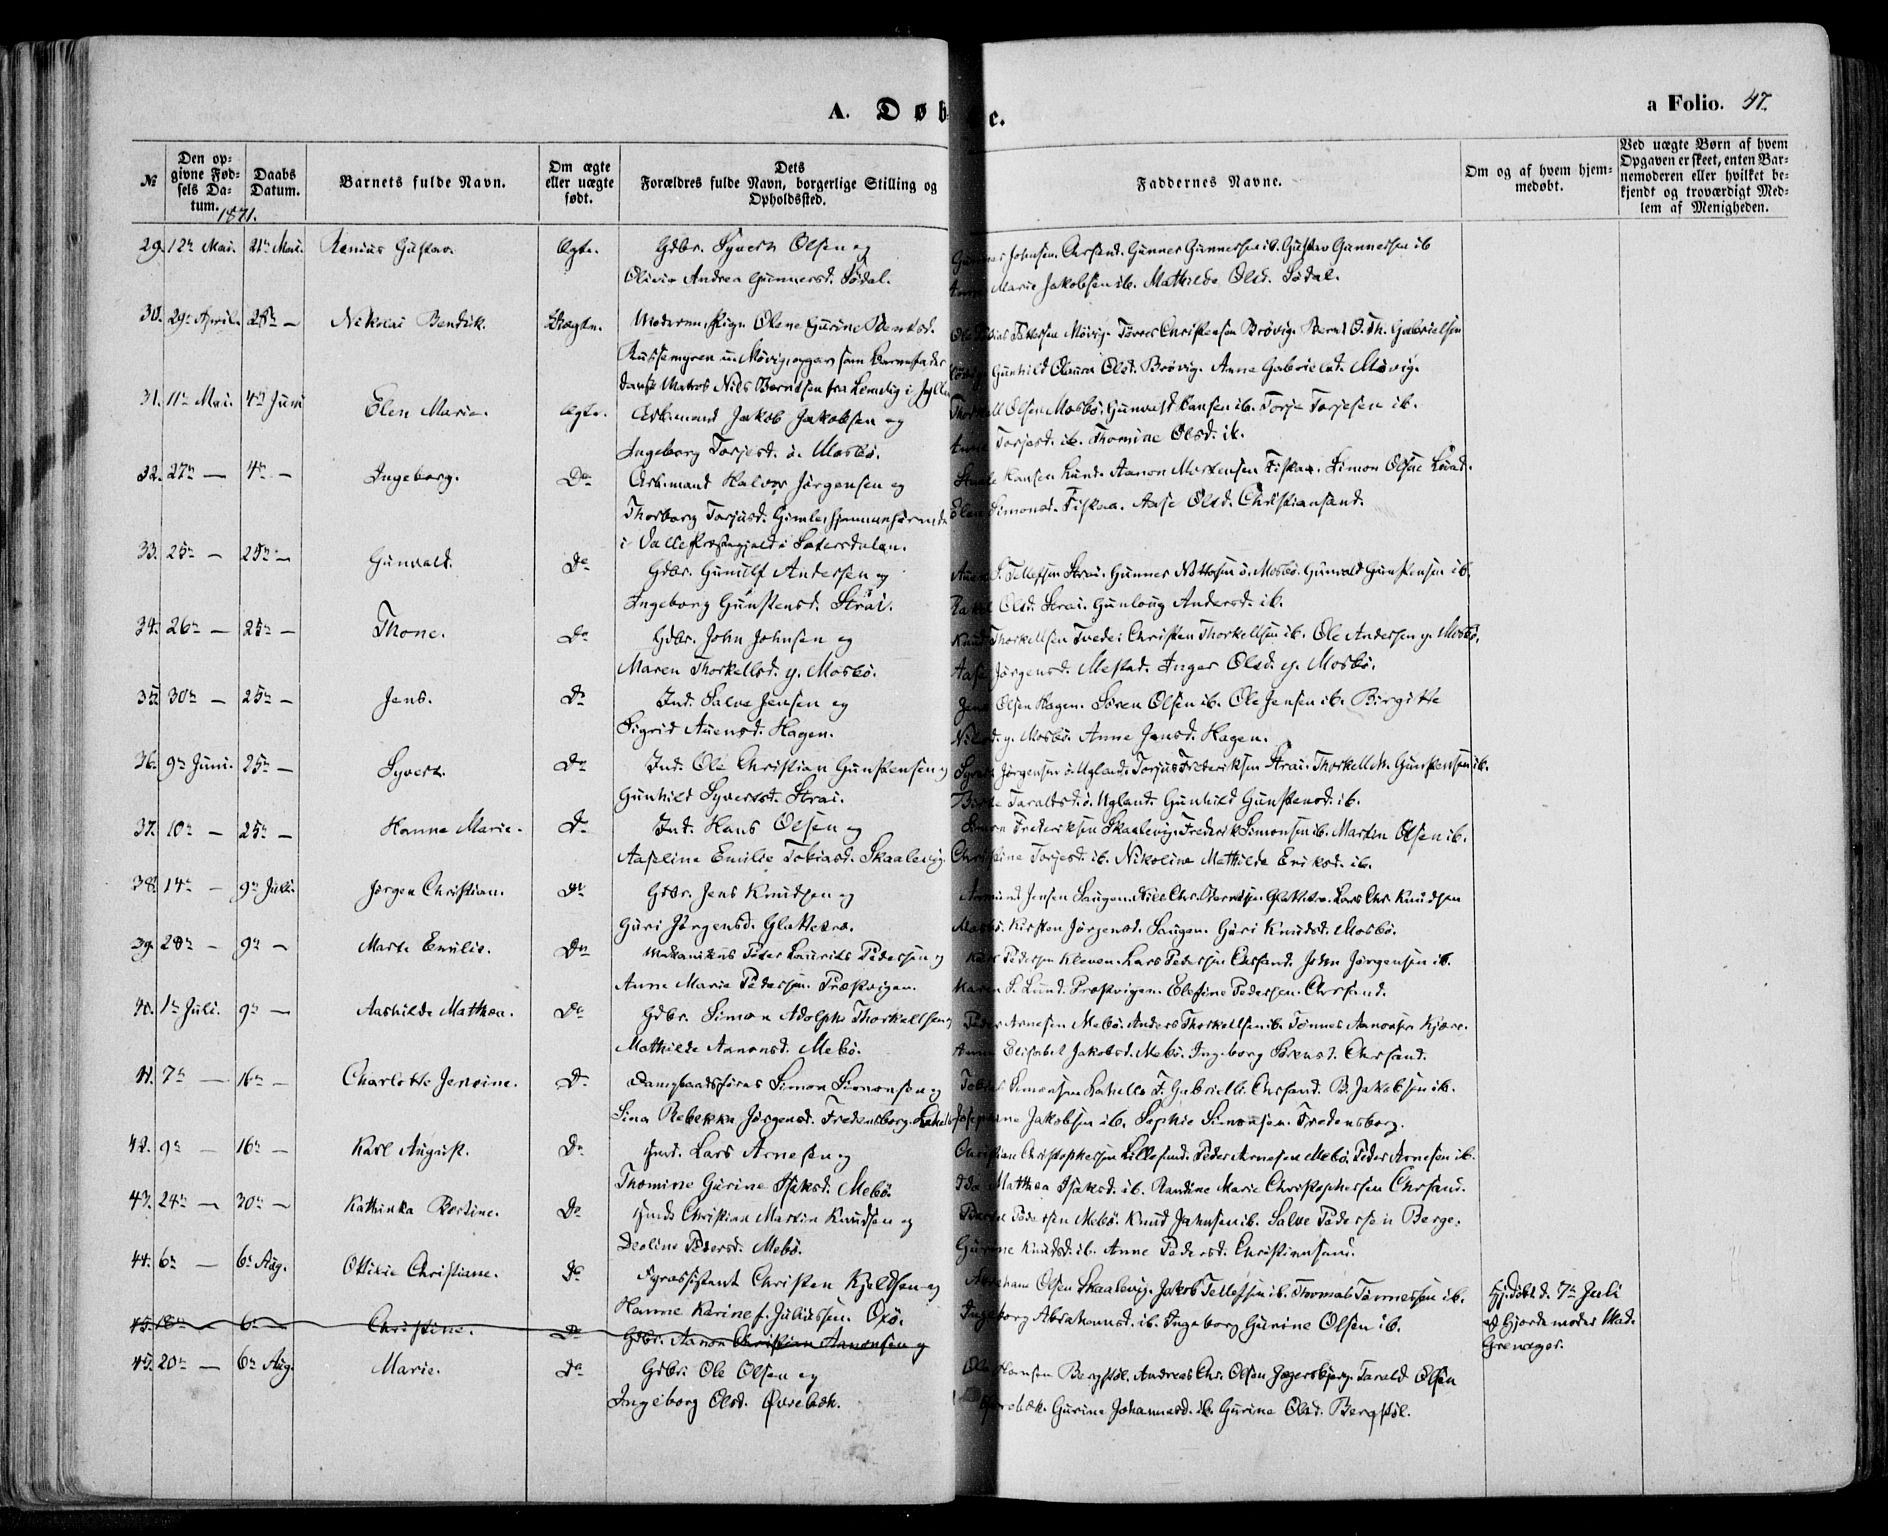 A. Døb te.
a Folio. 47.
№
Den opgivne Fødsels Datum.
Daabs Datum.
Barnets fulde Navn.
Om ægte eller uægte født.
Dets Forældres fulde Navn, borgerlige Stilling og Opholdssted.
Faddernes Navne.
Om og af hvem hjemmedøbt.
Ved uægte Børn af hvem Opgaven er skeet, enten Barnemoderen eller hvilket bekjendt og troværdigt Medlem af Menigheden.
1871.
29. 12te Mai. 21de Mai. Gustav. Ægte. Gdbr. Syvert Olsen og Johnsen. Chrsand. Gunner Gunnersen ib. Gustav Gunnersen ib
Olivia Andrea Gunnersd. Sødal. Marie Jakobsen ib. Mathilde Olsd. Sødal.
30. 29de April. 28de — Nikolai Bendik. Uægte. Moderen, Pige Olene Gurine Berntsd. Ole Tobias Tellefsen Møvig. Tørres Christensen Brøvig. Bernt O. Th. Gabrielsen
Møvig, opgav som Barnefader Gunhild Olaura Olsd. Brøvig. Anne Gabrielsd. Møvig.
dansk Matros Nils Berntsen fra Lemvig i Jylland
31. 11te Mai. 4de Juni Elen Marie. Ægte. Arbmand Jakob Jakobsen og Thorkell Olsen Mosbø. Gunvald Hansen ib. Torje Torjesen ib.
Ingeborg Torjesd. ø. Mosbø. Torjesd. ib. Thomine Olsd. ib.
32. 27de — 4de — Ingeborg. Do Arbmand Halvor Jørgensen og Hansen Lund. Aanon Mortensen Fiskaa. Simon Olsen
Thorborg Torjusd. Gimle, hjemmehørende Elen Simonsd. Fiskaa. Aase Olsd. Christiansand.
i Valle Præstegjeld i Sætersdalen.
33. 25de — 25de — Gunvald. Do Gdbr. Gunulf Andersen og Tellefsen Strai. Gunner ø. Mosbø. Gunvald Gunstensen ib.
Ingeborg Gunstensd. Strai. Olsd. Strai. Gunloug Andersd. ib.
34. 26de — 25de — Thone. Do Gdbr. John Johnsen og Knud Thorkellsen Tvede. Christen Thorkellsen ib. Ole Andersen y. Mosbø.
Maren Thorkellsd. y. Mosbø. Aase Jørgensd. Mestad. Inger Olsd. y. Mosbø.
35. 30de — 25de — Jens. Do Ind. Salve Jensen og Jens Olsen Hagen. Søren Olsen ib. Ole Jensen ib. Birgitte
Sigrid Auensd. Hagen. Nilsd. y. Mosbø. Anne Jensd. Hagen.
36. 9de Juni. 25de — Syvert. Do Ind. Ole Christian Gunstensen og Syvert Jørgensen ø. Ugland. Torjus Frederiksen Strai. Thorkell M. Gunstensen ib.
Gunhild Syvertsd. Strai. Taraldsd. ø. Ugland. Gunhild Gunstensd. ib.
37. 10de — 25de — Hanne Marie. Do Ind. Hans Olsen og Simon Frederiksen Skaalevig. Frederik Simonsen ib. Martin Olsen ib.
Aaseline Emilie Tobiasd. Skaalevig. Christine Torjesd. ib. Nikoline Mathilde Eriksd. ib.
38. 14de — 9de Juli. Jørgen Christian. Do Gdbr. Jens Knudsen og Jensen Saugen. Nils Chr. Glattetre. Lars Chr. Knudsen
Guri Jørgensd. Glattetre. Mosbø. Kirsten Jørgensd. Saugen. Guri Knudsd. Mosbø.
39. 28de — 9de — Marte Emilie. Do Mekanikus Peter Laurits Pedersen og Pedersen Kleven. Lars Pedersen Chrsand. John Jørgensen ib.
Anne Marie Pedersen. Præstvigen. Maren S. Lund. Præstvigen. Elefine Pedersen. Chrsand.
40. 1te Juli. 9de — Aashilde Matthea. Do Gdbr. Simon Adolph Thorkellsen og Peder Arnesen Mebø. Anders Thorkellsen ib. Tønnes Aanonsen Kjære.
Mathilde Aanonsd. Mebø. Elisabet Jakobsd. Mebø. Ingeborg Sørensd. Chrsand.
41. 7de — 16de — Charlotte Jensine. Do Dampbaadsfører Simon Simonsen og Tobias Simonsen Lahelle F. Gabriells. Chrsand. B. Jakobsen ib.
Sina Rebekka Jørgensd. Fredensborg. Josephine Jakobsen ib. Sophie Simonsen. Fredensborg.
42. 9de — 16de — Karl August. Do Lars Arnesen og Christian Christophersen Lillesund. Peder Arnesen Mebø. Peder Arnesen ib.
Thomine Gurine Isaksd. Mebø. Ida Matthea Isaksd. ib. Randine Marie Christophersen Chrsand.
43. 24de — 30de — Kathinka Bertine. Do Christian Martin Knudsen og Pedersen Mebø. Knud Johnsen ib. Salve Pedersen Berge.
Deoline Pedersd. Mebø. Gurine Knudsd. ib. Anne Pedersd. Christiansand.
44. 6te — 6te Aug. Ottilie Christiane. Do Fyrassistent Christen Kjeldsen og Abraham Olsen Skaalevig. Jakob Tellefsen ib. Thomas Tønnessen ib. Hj.døbt d. 7de Juli
Hanne Karine f. Juliussen. Oxø. Ingeborg Abrahamsd. ib. Ingeborg Gurine Olsen ib. af Gjordemoder Mad. Grenager.
45. 18de — 6te — Christine. Do Gdbr. Aanon Christian Aanonsen og
45. 20de — 6te Aug. Marie. Do Gdbr. Ole Olsen og Ole Hansen Bergstøl. Andreas Chr. Olsen Jegersbjerg. Tarald Olsen
Ingeborg Olsd. Øvrebæk. Øvrebæk. Gurine Johannesd. ib. Gurine Olsd. Bergstøl.